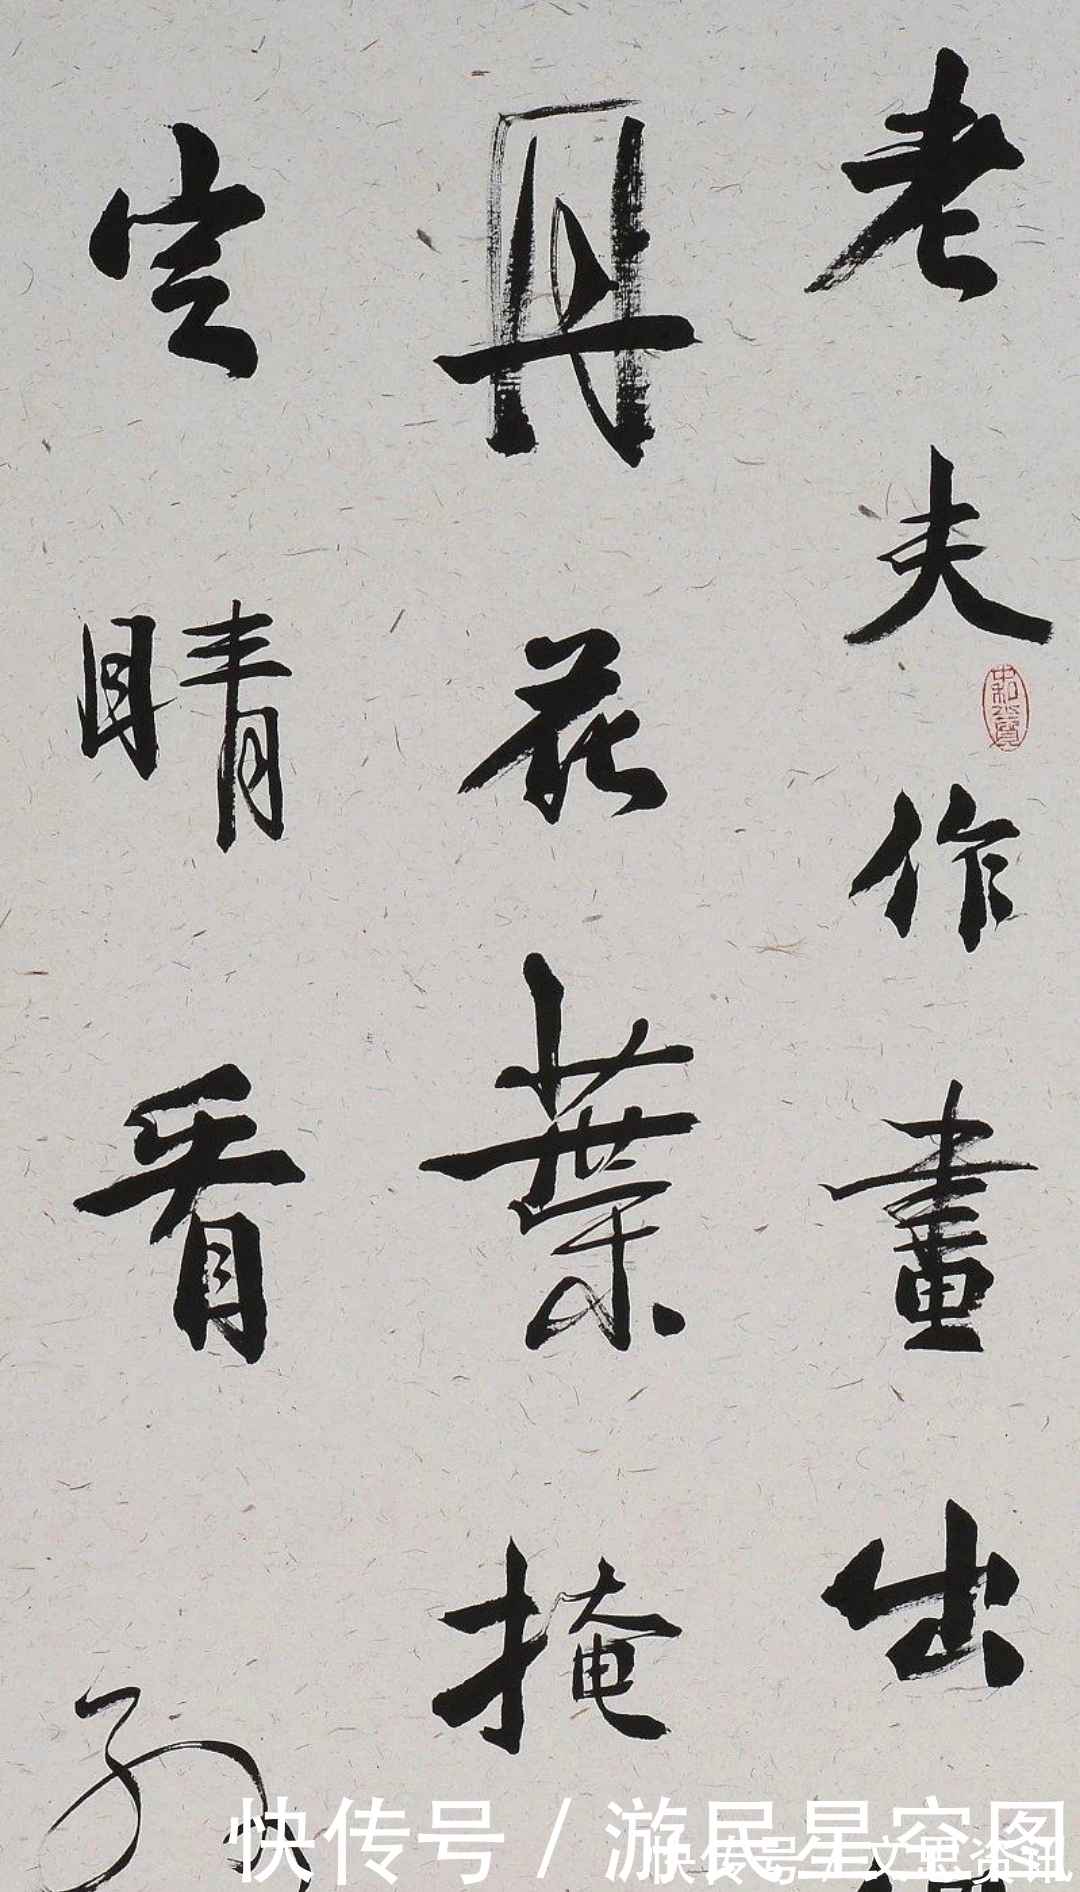 老夫作畫出
丹花葉掩
空晴看
快传号/游民星空图